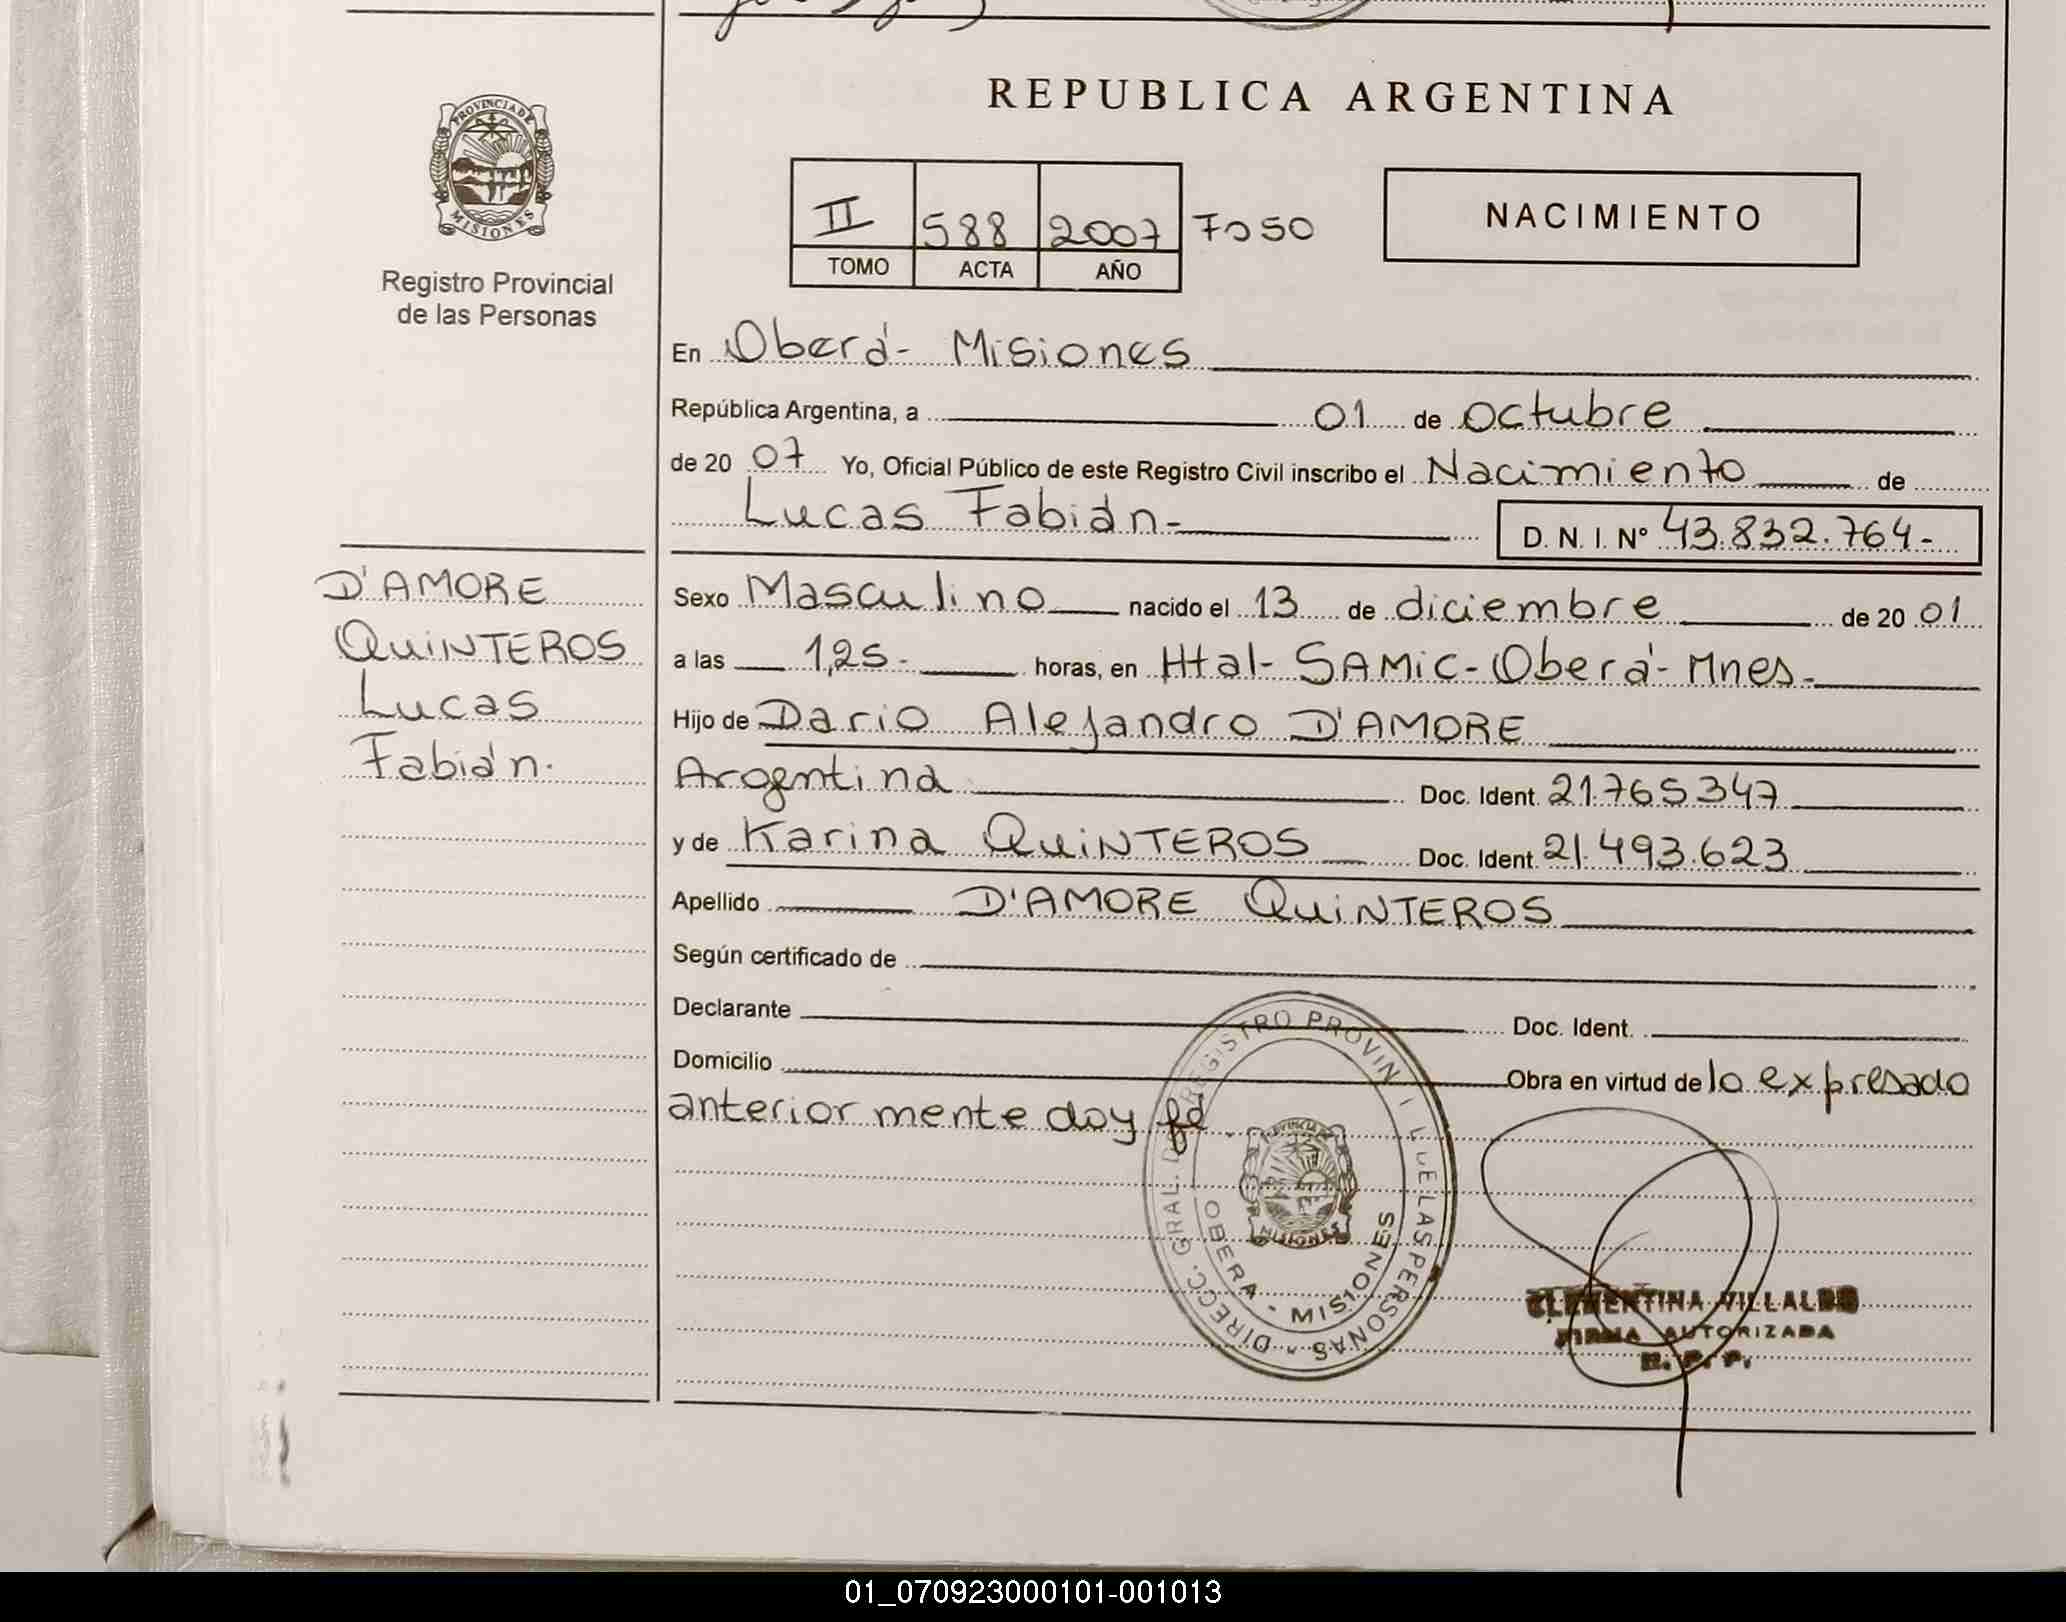 REPUBLICA ARGENTINA
PROVINCIA DE
MISIONES
Registro Provincial
de las Personas
II 588 2007 Fo 50
TOMO ACTA AÑO
NACIMIENTO
En Oberá- Misiones
República Argentina, a 01 de octubre
de 20 07 Yo, Oficial Público de este Registro Civil inscribo el Nacimiento de
Lucas Fabián- D. N. I. Nº 43.832.764-
D'AMORE
QUINTEROS
Lucas
Fabián.
Sexo Masculino nacido el 13 de diciembre de 20 01
a las 1,25- horas, en Htal- SAMIC- Oberá- Mnes-
Hijo de Dario Alejandro D'AMORE
Argentina Doc. Ident. 21.765347
y de Karina QUINTEROS Doc. Ident. 21.493.623
Apellido D'AMORE QUINTEROS
Según certificado de
Declarante Doc. Ident.
Domicilio Obra en virtud de lo expresado
anteriormente doy fé.
DIRECC. GRAL. REGISTRO PROVIN DE LAS PERSONAS
OBERA - MISIONES
MISIONES
CLEMENTINA
FIRMA AUTORIZADA
R. P. P.
01_070923000101-001013